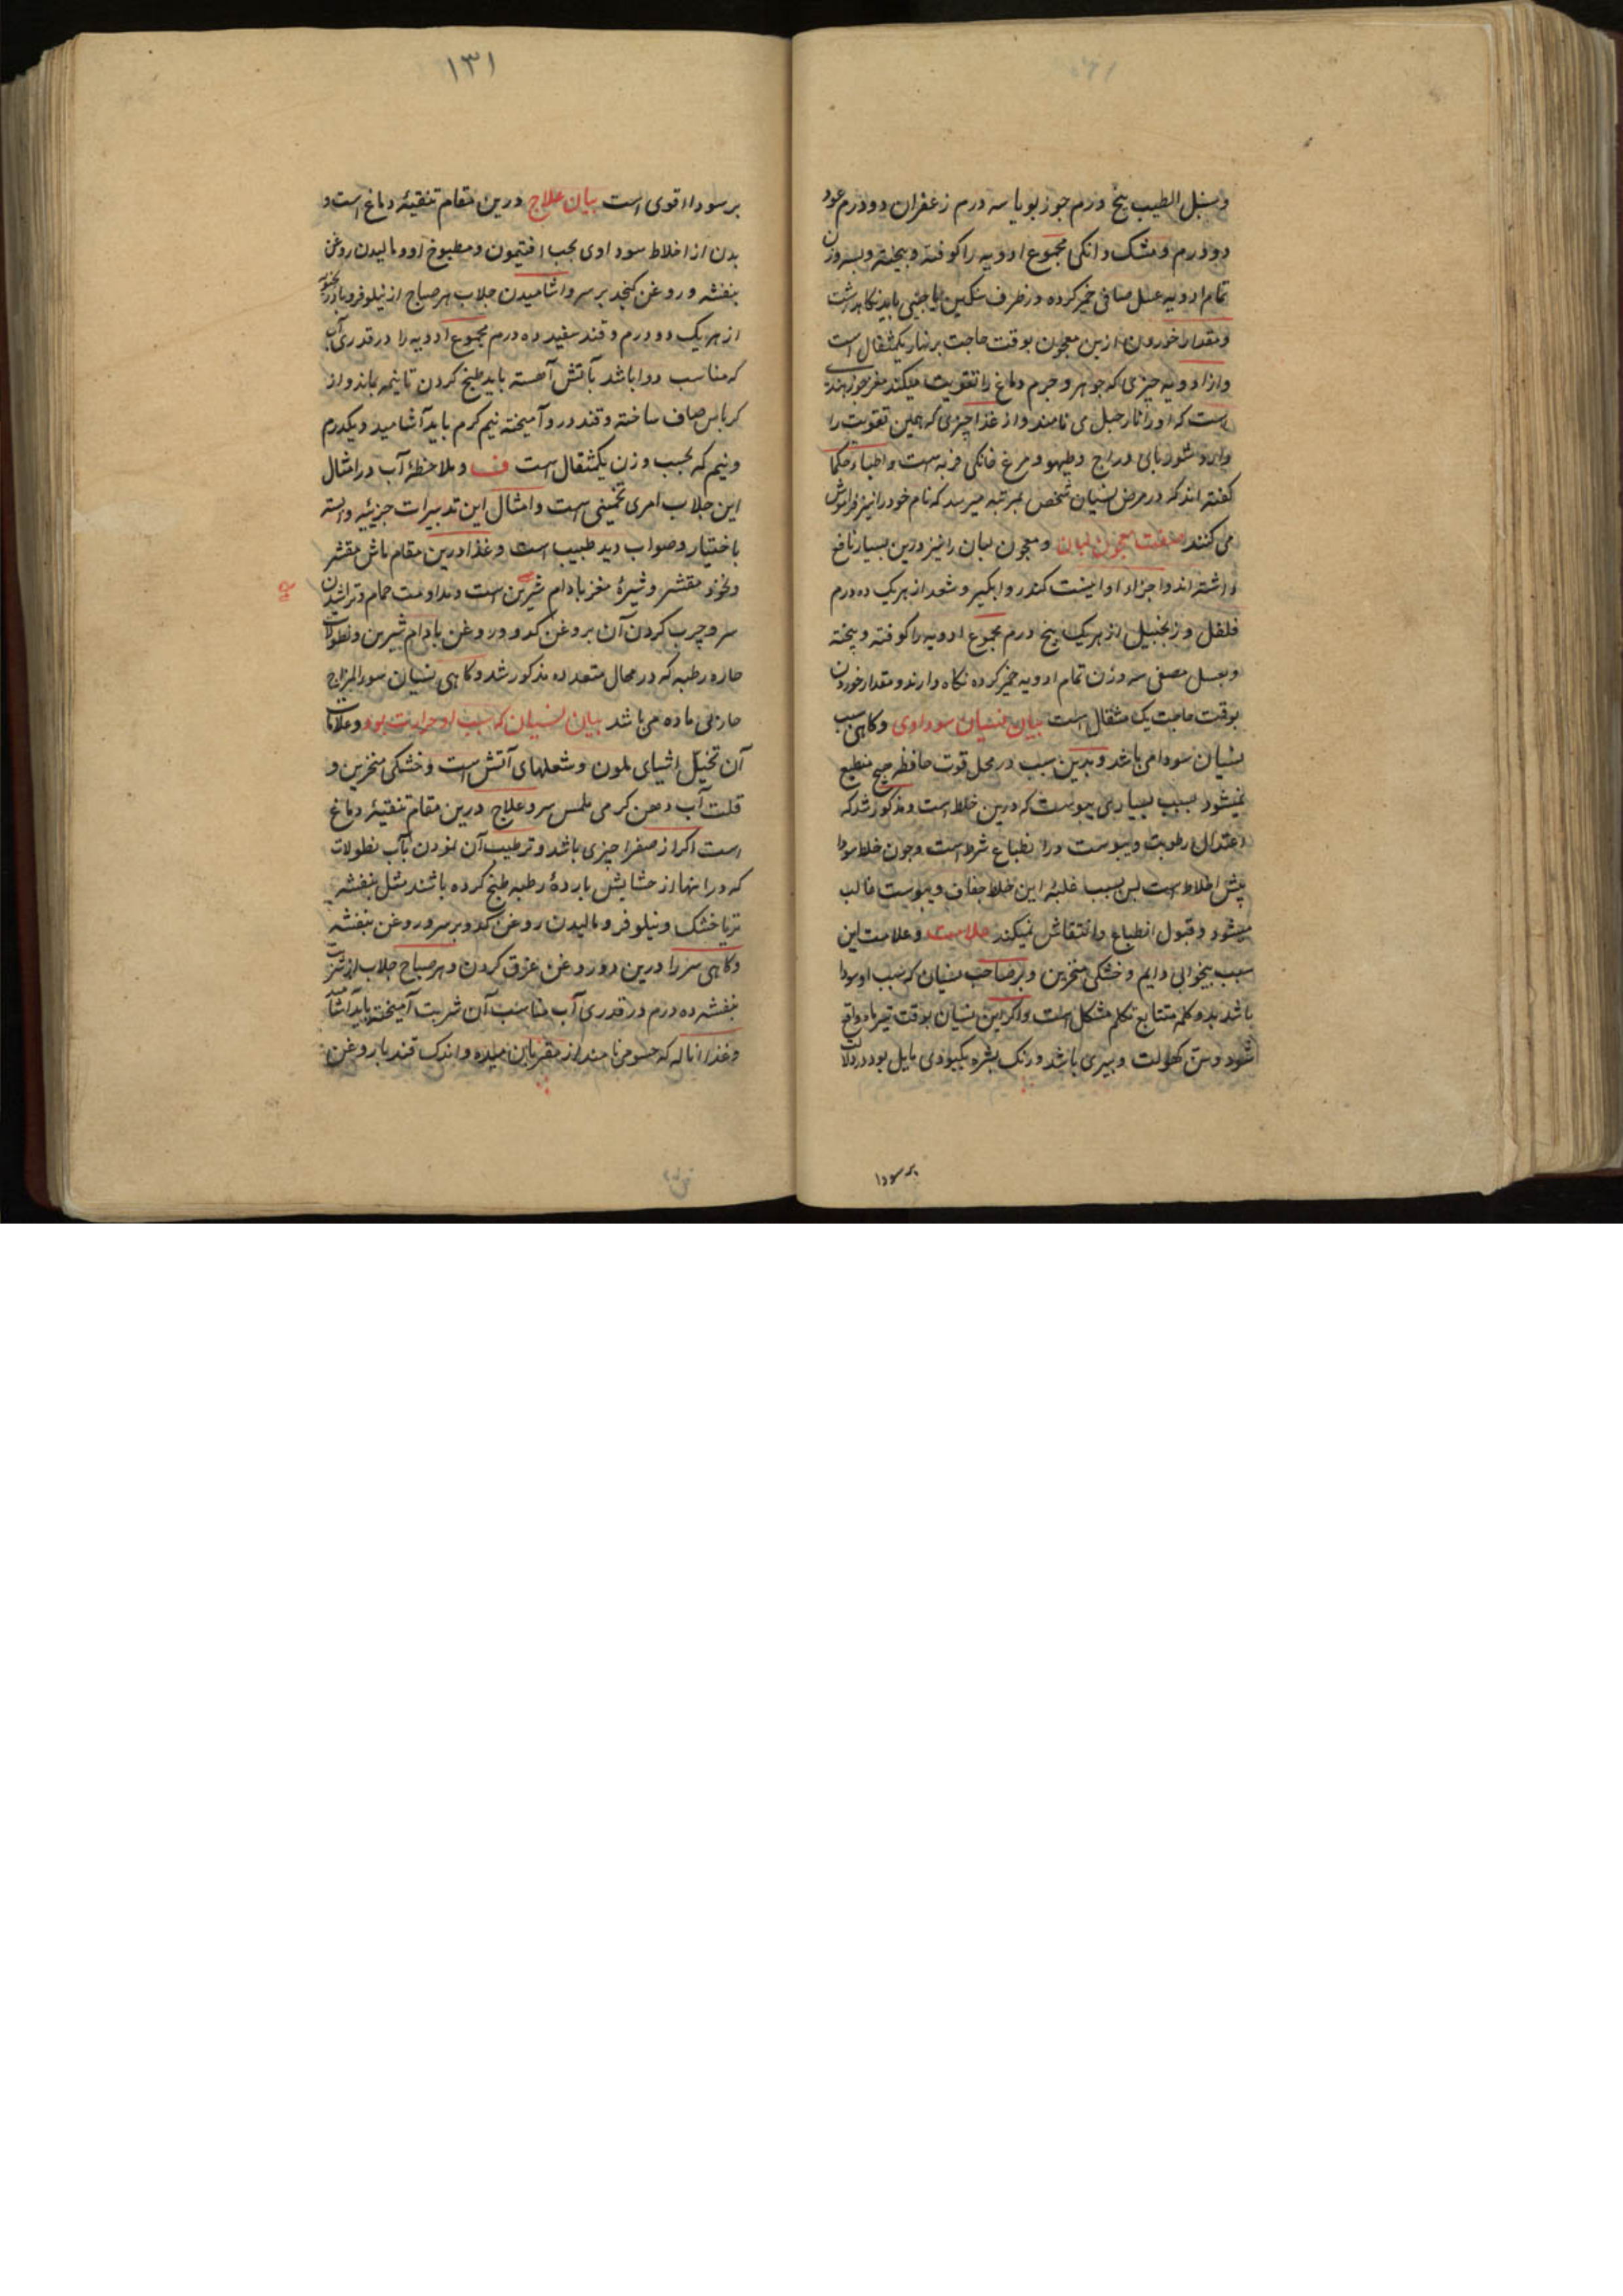 وسنبل الطیب پنج درم جوز بویا سه درم زعفران دو درم عود
دو درم و مشک دانکی مجموع ادویه را کوفته و بیخته و بسه وزن
تمام ادویه عسل صافی خمیر کرده در ظرف سنکین یا چینی باید نکاهداشت
و مقدار خوردن ازین معجون بوقت حاجت برنهار یکمثقال است
و از ادویه چیزی که جوهر و جرم دماغ را تقویت میکند مغز جوز هند
است که او را نارجیل می نامند و از غذا چیزی که همین تقویت را
دارد شوربای دراج و طیهو و مرغ خانکی فربه است و اطبا و حکما
کفته اند که در مرض نسیان شخص بمرتبه میرسد که نام خود را نیز فراموش
می کنند صفت معجون لبان و معجون لبان را نیز درین بسیار نافع
داشته اند و اجزاء او اینست کندر و ابکیر و سعد از هر یک ده درم
فلفل و زنجبیل از هر یک پنج درم مجموع ادویه را کوفته و بیخته
و بعسل مصفی سه وزن تمام ادویه خمیر کرده نکاه دارند و مقدار خوردن
بوقت حاجت یک مثقال است بیان نسیان سوداوی و کاهی سبب
نسیان سودا می باشد و بدین سبب در محل قوت حافظه هیچ منطبع
نمیشود بسبب بسیاری یبوست که درین خلط است و مذکور شد که
اعتدال رطوبت و یبوست در انطباع شرط است و چون خلط سودا
اخلاط است پس بسبب غلبه این خلط جفاف و یبوست غالب
میشود و قبول انطباع و انتقاش نمیکند علامت و علامت این
سبب بیخوابی دایم و خشکی منخرین و بر صاحب نسیان که سبب او سودا
باشد بدو کلمه متتابع تکلم مشکل است و اکر این نسیان بوقت
شود و سن کهولت و پیری باشد و رنک بشره بکبودی مایل بود دلالت
بر سودا
۱۳۱
بر سودا اقوی است بیان علاج درین مقام تنقیه دماغ است و
بدن از اخلاط سوداوی بحب افتیمون و مطبوخ او و مالیدن روغن
بنفشه و روغن کنجد بر سر و اشامیدن جلاب هر صباح از نیلوفر و بادرنجبویه
از هر یک دو درم و قند سفید ده درم مجموع ادویه را در قدری آب
که مناسب دوا باشد بآتش آهسته باید طبخ کردن تا نیمه بماند و از
کرباس صاف ساخته و قند درو آمیخته نیم کرم باید آشامید و یکدرم
و نیم که بحسب وزن یکمثقال است ف و ملاحظه آب در امثال
این جلاب امری تخمینی است و امثال این تدبیرات جزئیه وابسته
باختیار و صواب دید طبیب است و غذا درین مقام ماش مقشر
و نخود مقشر و شیره مغز بادام شیرین است و مداومت حمام و تراشیدن
سر و چرب کردن آن بروغن کدو و روغن بادام شیرین و نطولات
حاره رطبه که در محال متعدده مذکور شد و کاهی نسیان سوءالمزاج
حار بی ماده می باشد بیان نسیان که سبب او حرارت بود و علامات
آن تخیل اشیای ملون و شعلهای آتش است و خشکی منخرین و
قلت آب دهن کرمی ملمس سر و علاج درین مقام تنقیه دماغ
است اکر از صفرا چیزی باشد و ترطیب آن نمودن بآب نطولات
که در انها از حشایش بارده رطبه طبخ کرده باشند مثل بنفشه
تر یا خشک و نیلوفر و مالیدن روغن کدو بر سر و روغن بنفشه
و کاهی سر را درین دو روغن غرق کردن و هر صباح جلاب از شربت
بنفشه ده درم در قدری آب مناسب آن شربت آمیخته باید آشامید
و غذا اناله که حسو می نامند از مغز نان میده و اندک قند با روغن